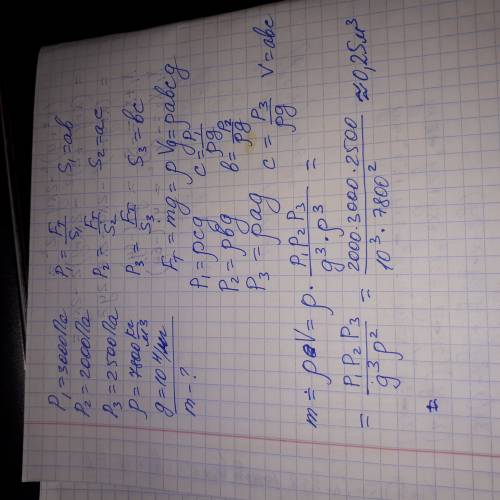 P₁ = 3000 Pa
P₂ = 2000 Pa
P₃ = 2500 Pa
ρ = 7800 кг/м³
g = 10 Н/кг
m - ?
P₁ = Fт/S₁   S₁ = ab
P₂ = Fт/S₂   S₂ = ac
P₃ = Fт/S₃   S₃ = bc
Fт = mg = ρVg = ρabcg
P₁ = ρcg   c = P₁/ρg
P₂ = ρbg   b = P₂/ρg
P₃ = ρag   c = P₃/ρg   V = abc
m = ρV = ρ · P₁P₂P₃/g³·ρ³ =
= P₁P₂P₃/g³ρ² = 2000·3000·2500/10³·7800² ≈ 0,25 м³